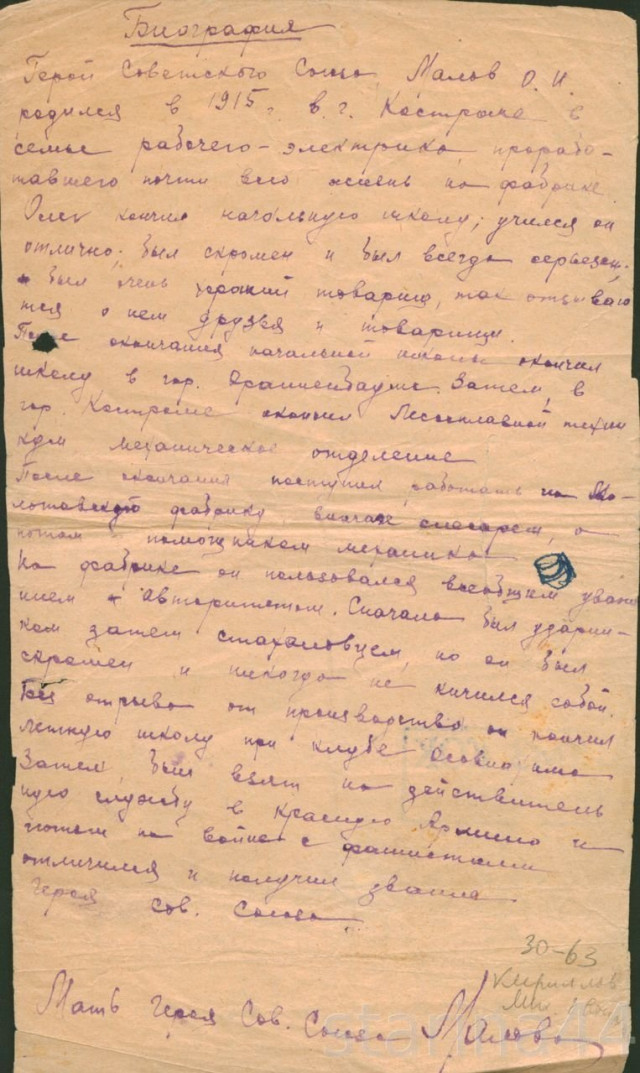 Биография
Герой Советского Союза Малов О. И.
родился в 1915 г. в г. Костроме в
семье рабочего-электрика, прорабо-
тавшего почти всю жизнь на фабрике.
Олег кончил начальную школу; учился он
отлично; был скромен и был всегда серьезен,
был очень хороший товарищ, так отзываю
тся о нем друзья и товарищи.
После окончания начальной школы окончил
школу в гор. Ораниенбауме. Затем, в
гор. Костроме окончил Лесосплавной техни
кум механическое отделение
После окончания поступил работать на Мо-
лотовскую фабрику вначале слесарем, а
потом помощником механика
На фабрике он пользовался всеобщим уваже
нием и авторитетом. Сначала был ударни-
ком затем стахановцем, но он был
скромен и никогда не кичился собой.
Без отрыва от производства он кончил
летную школу при клубе Осовиахима
Затем, был взят на действитель
ную службу в Красную Армию и
потом на войне с фашистами
отличился и получил звание
Героя Сов. Союза.
30-63
Кириллов
Мать Героя Сов. Союза Малова
starina44